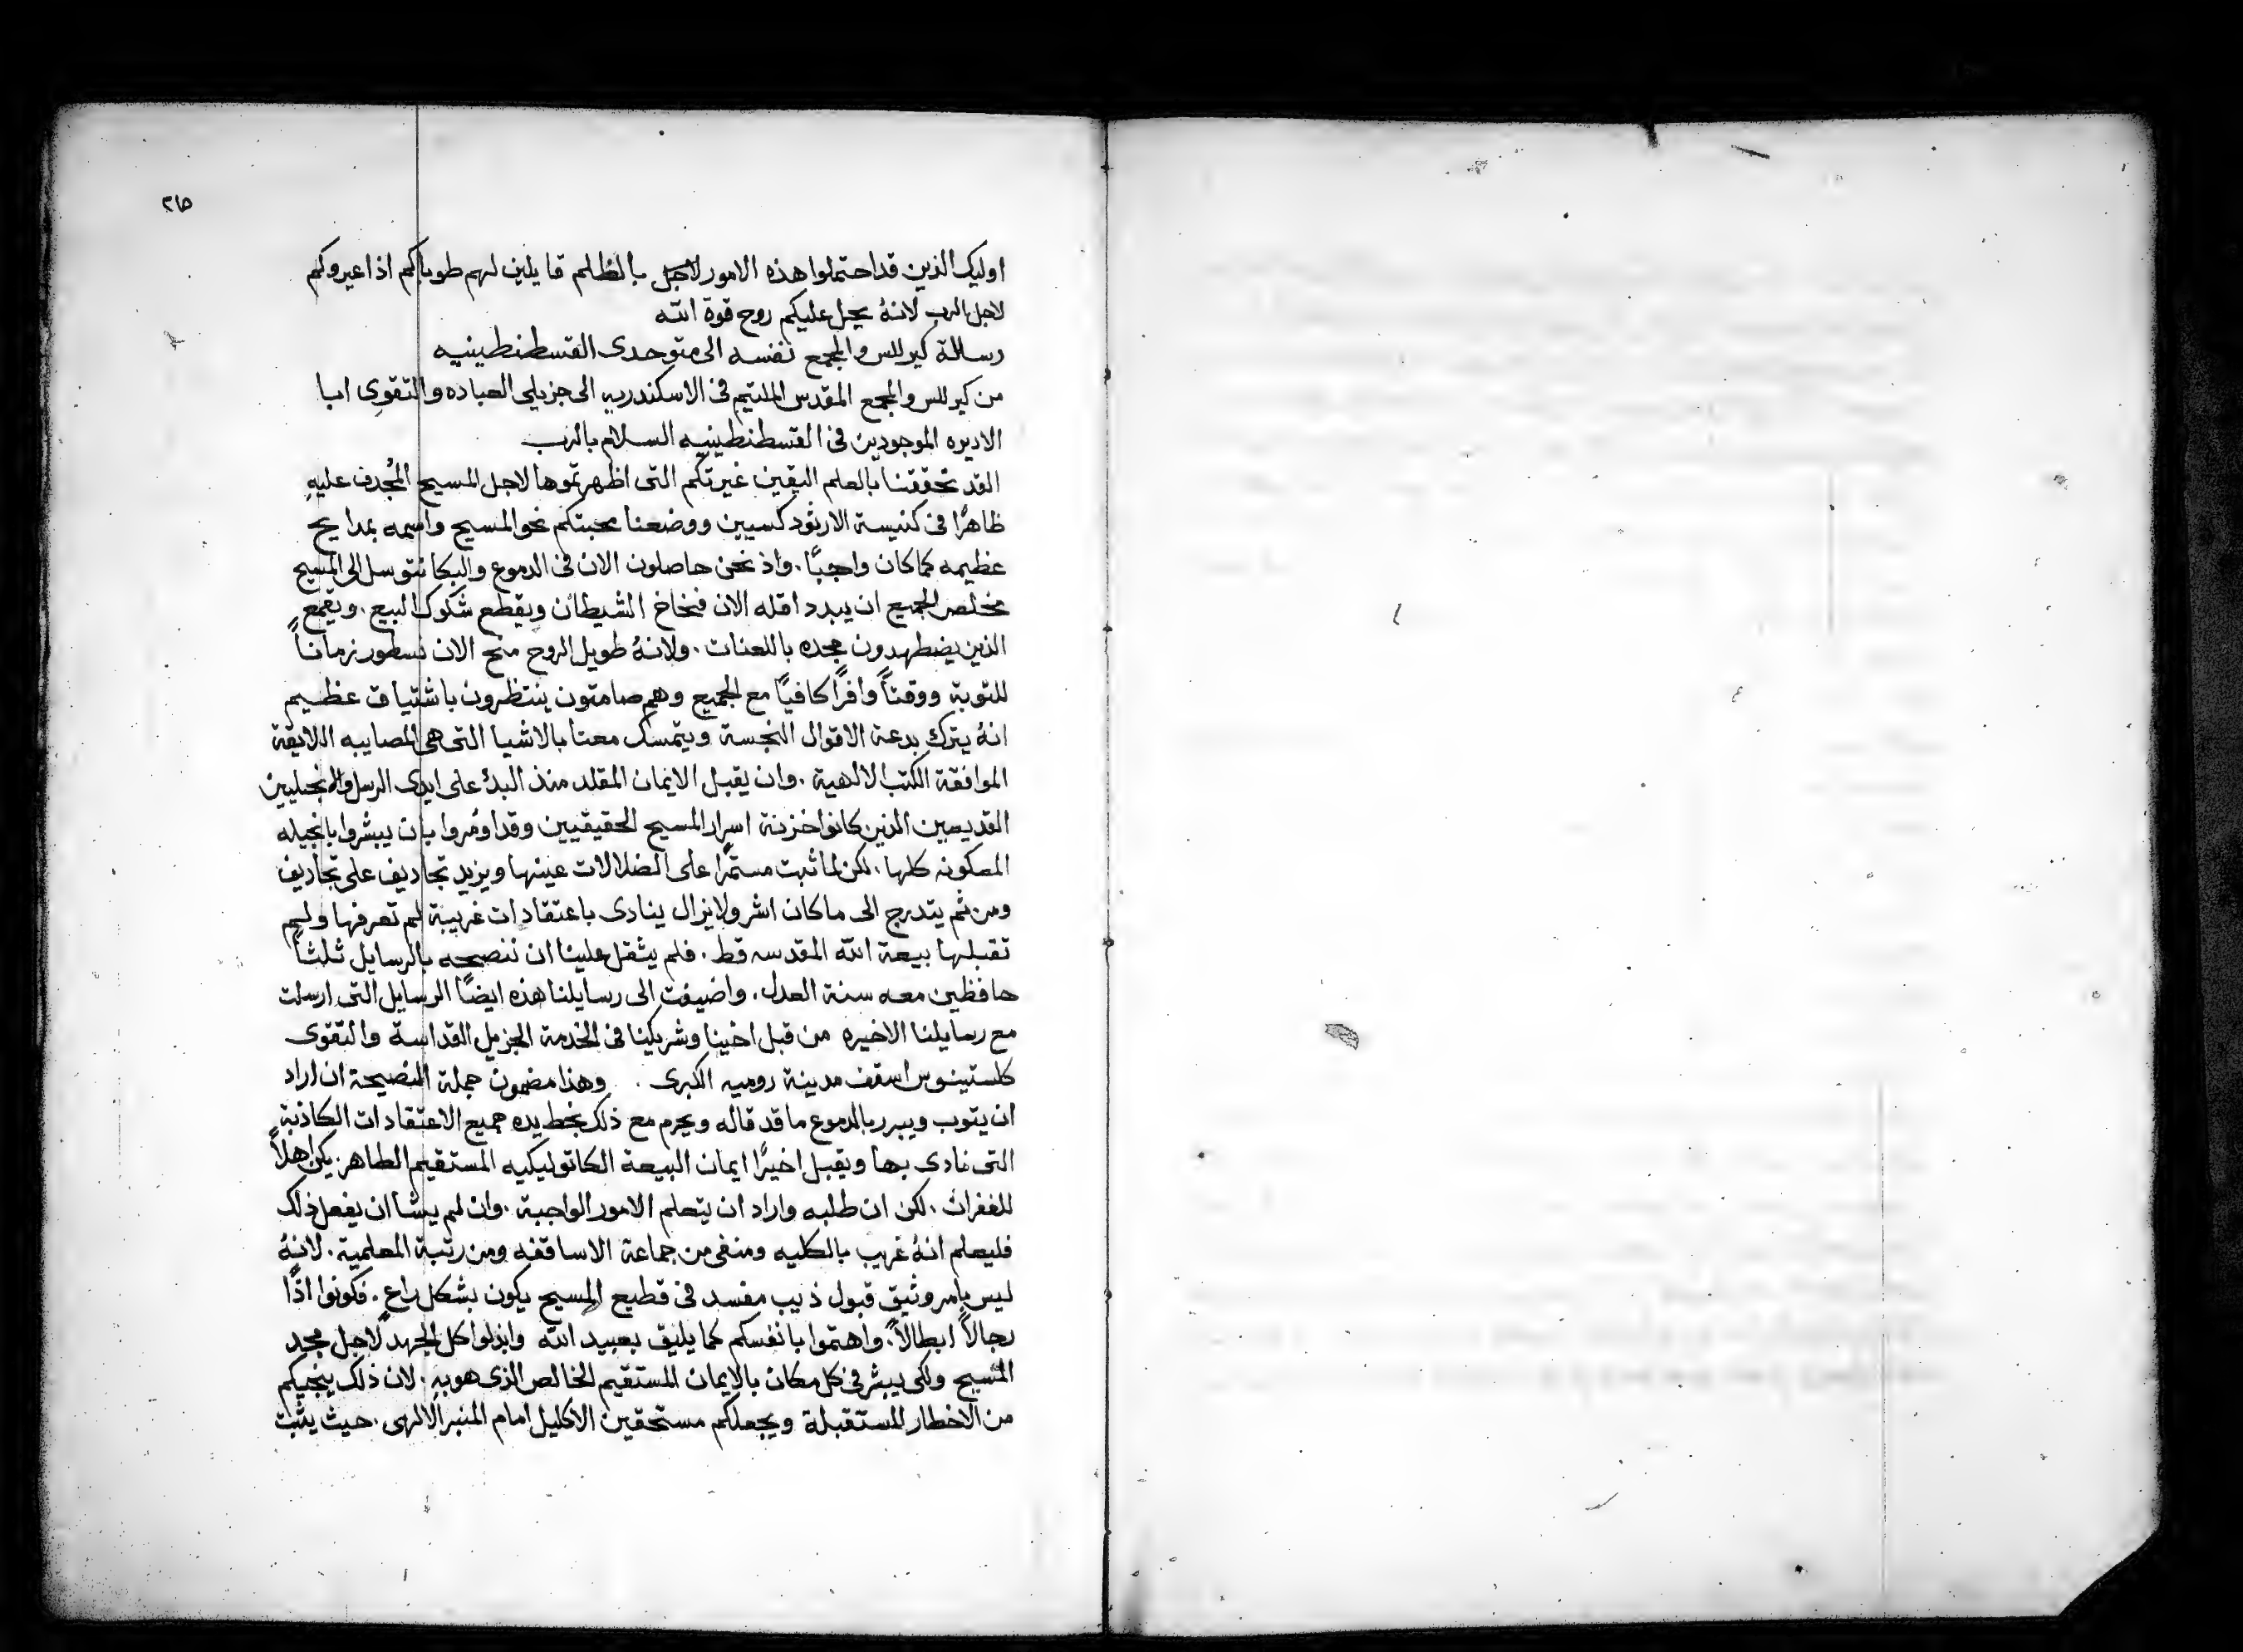 ٢١٥
اوليك الذين قد احتملوا هذه الامور لاجل بالظلم قايلين لهم طوباكم اذا عيروكم
لاجل الرب لانهُ يحل عليكم روح قوة الله
رسالة كيرللس والمجمع نفسه الى متوحدى القسطنطينيه
من كيرللس والمجمع المقدس الملتيم فى الاسكندريه الى جزيلى العباده والتقوى ابا
الاديره الموجودين فى القسطنطينيه السلام بالرب
القد تحققنا بالعلم اليقين غيرتكم التى اظهرتموها لاجل المسيح المُجدف عليهِ
ظاهرًا فى كنيسة الارثودكسيين ووضعنا محبتكم نحو المسيح واسمه بمدايح
عظيمه كما كان واجبًا. واذ نحن حاصلون الان فى الدموع والبكا نتوسل الى المسيح
مخلص الجميع ان يبدد اقله الان فخاخ الشيطان ويقطع شكوك البيع. ويقمع
الذين يضطهدون مجده باللعنات. ولانهُ طويل الروح منح الان نسطور زمانًا
للتوبة ووقتًا وافرًا كافيًا مع الجميع وهم صامتون ينتظرون باشتياق عظيم
انهُ يترك بدعة الاقوال النجسة ويتمسك معنا بالاشيا التى هى المصايبه اللايقة
الموافقة الكتب الالهية. وان يقبل الايمان المقلد منذ البدء على ايدى الرسل والانجيليين
القديسين الذين كانوا خزنة اسرار المسيح الحقيقيين وقد اومُروا بان يبشروا بانجيله
المسكونه كلها. لكن لما ثبت مستمرًا على الضلالات عينها ويزيد تجاديف على تجاديف
ومن ثم يتدرج الى ما كان اشر ولا يزال ينادى باعتقادات غريبة لم تعرفها ولم
تقبلها بيعة الله المقدسه قط. فلم يثقل علينا ان ننصحه بالرسايل ثلثًا
حافظين معه سنة العدل. واضيفت الى رسايلنا هذه ايضًا الرسايل التى ارسلت
مع رسايلنا الاخيره من قبل اخينا وشريكينا فى الخدمة الجزيل القداسة والتقوى
كلستينوس اسقف مدينة روميه الكبرى. وهذا مضمون جملة النصيحة ان اراد
ان يتوب ويبرر بالدموع ما قد قاله ويحرم مع ذلك بخط يده جميع الاعتقادات الكاذبة
التى نادى بها ويقبل اخيرًا ايمان البيعة الكاتوليكيه المستقيم الطاهر. يكن اهلًا
للغفران. لكن ان طلبه واراد ان يتعلم الامور الواجبة. وان لم يشا ان يفعل ذلك
فليعلم انهُ غريب بالكليه ومنفى من جماعة الاساقفه ومن رتبة المعلمية. لانهُ
ليس بامر وثيق قبول ذيب مفسد فى قطيع المسيح يكون بشكل راعٍ. فكونوا اذًا
رجالاً ابطالاً. واهتموا بانفسكم كما يليق بعبيد الله وابذلوا كل الجهد لاجل مجد
المسيح ولكى يبشر فى كل مكان بالايمان المستقيم الخالص الذى هو بهِ. لان ذلك ينجيكم
من الاخطار المستقبلة ويجعلكم مستحقين الاكليل امام المنبر الالهى. حيث يثبت